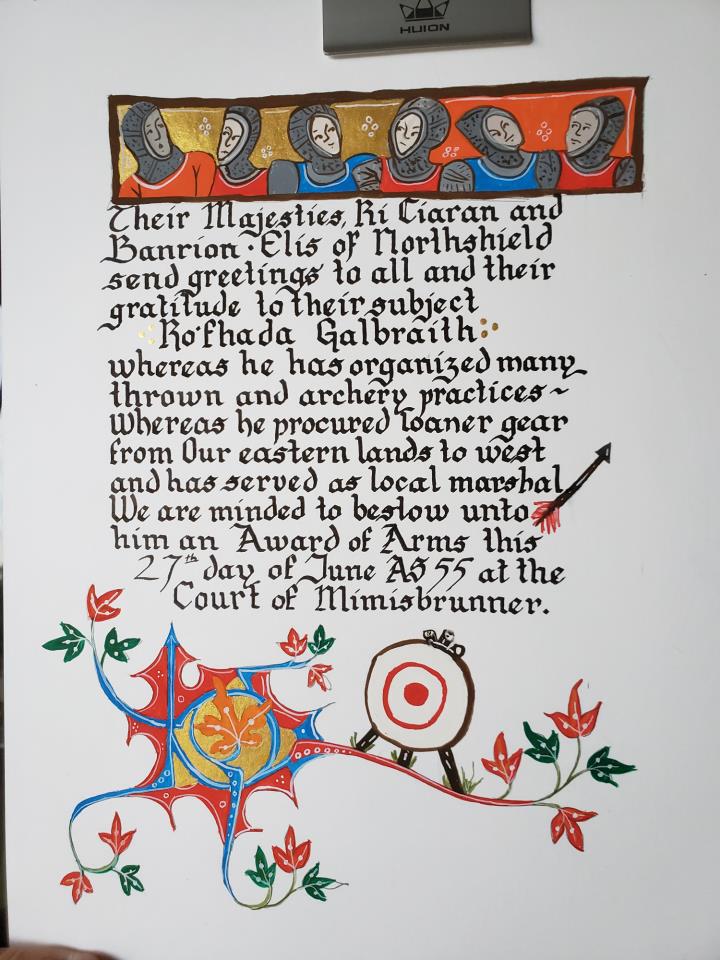 HUION
Their Majesties, Ri Ciaran and
Banrion · Elis of Northshield
send greetings to all and their
gratitude to their subject
Ro'fhada Galbraith
whereas he has organized many
thrown and archery practices ~
Whereas he procured loaner gear
from Our eastern lands to west
and has served as local marshal
We are minded to bestow unto
him an Award of Arms this
27th day of June AS 55 at the
Court of Mimisbrunner.